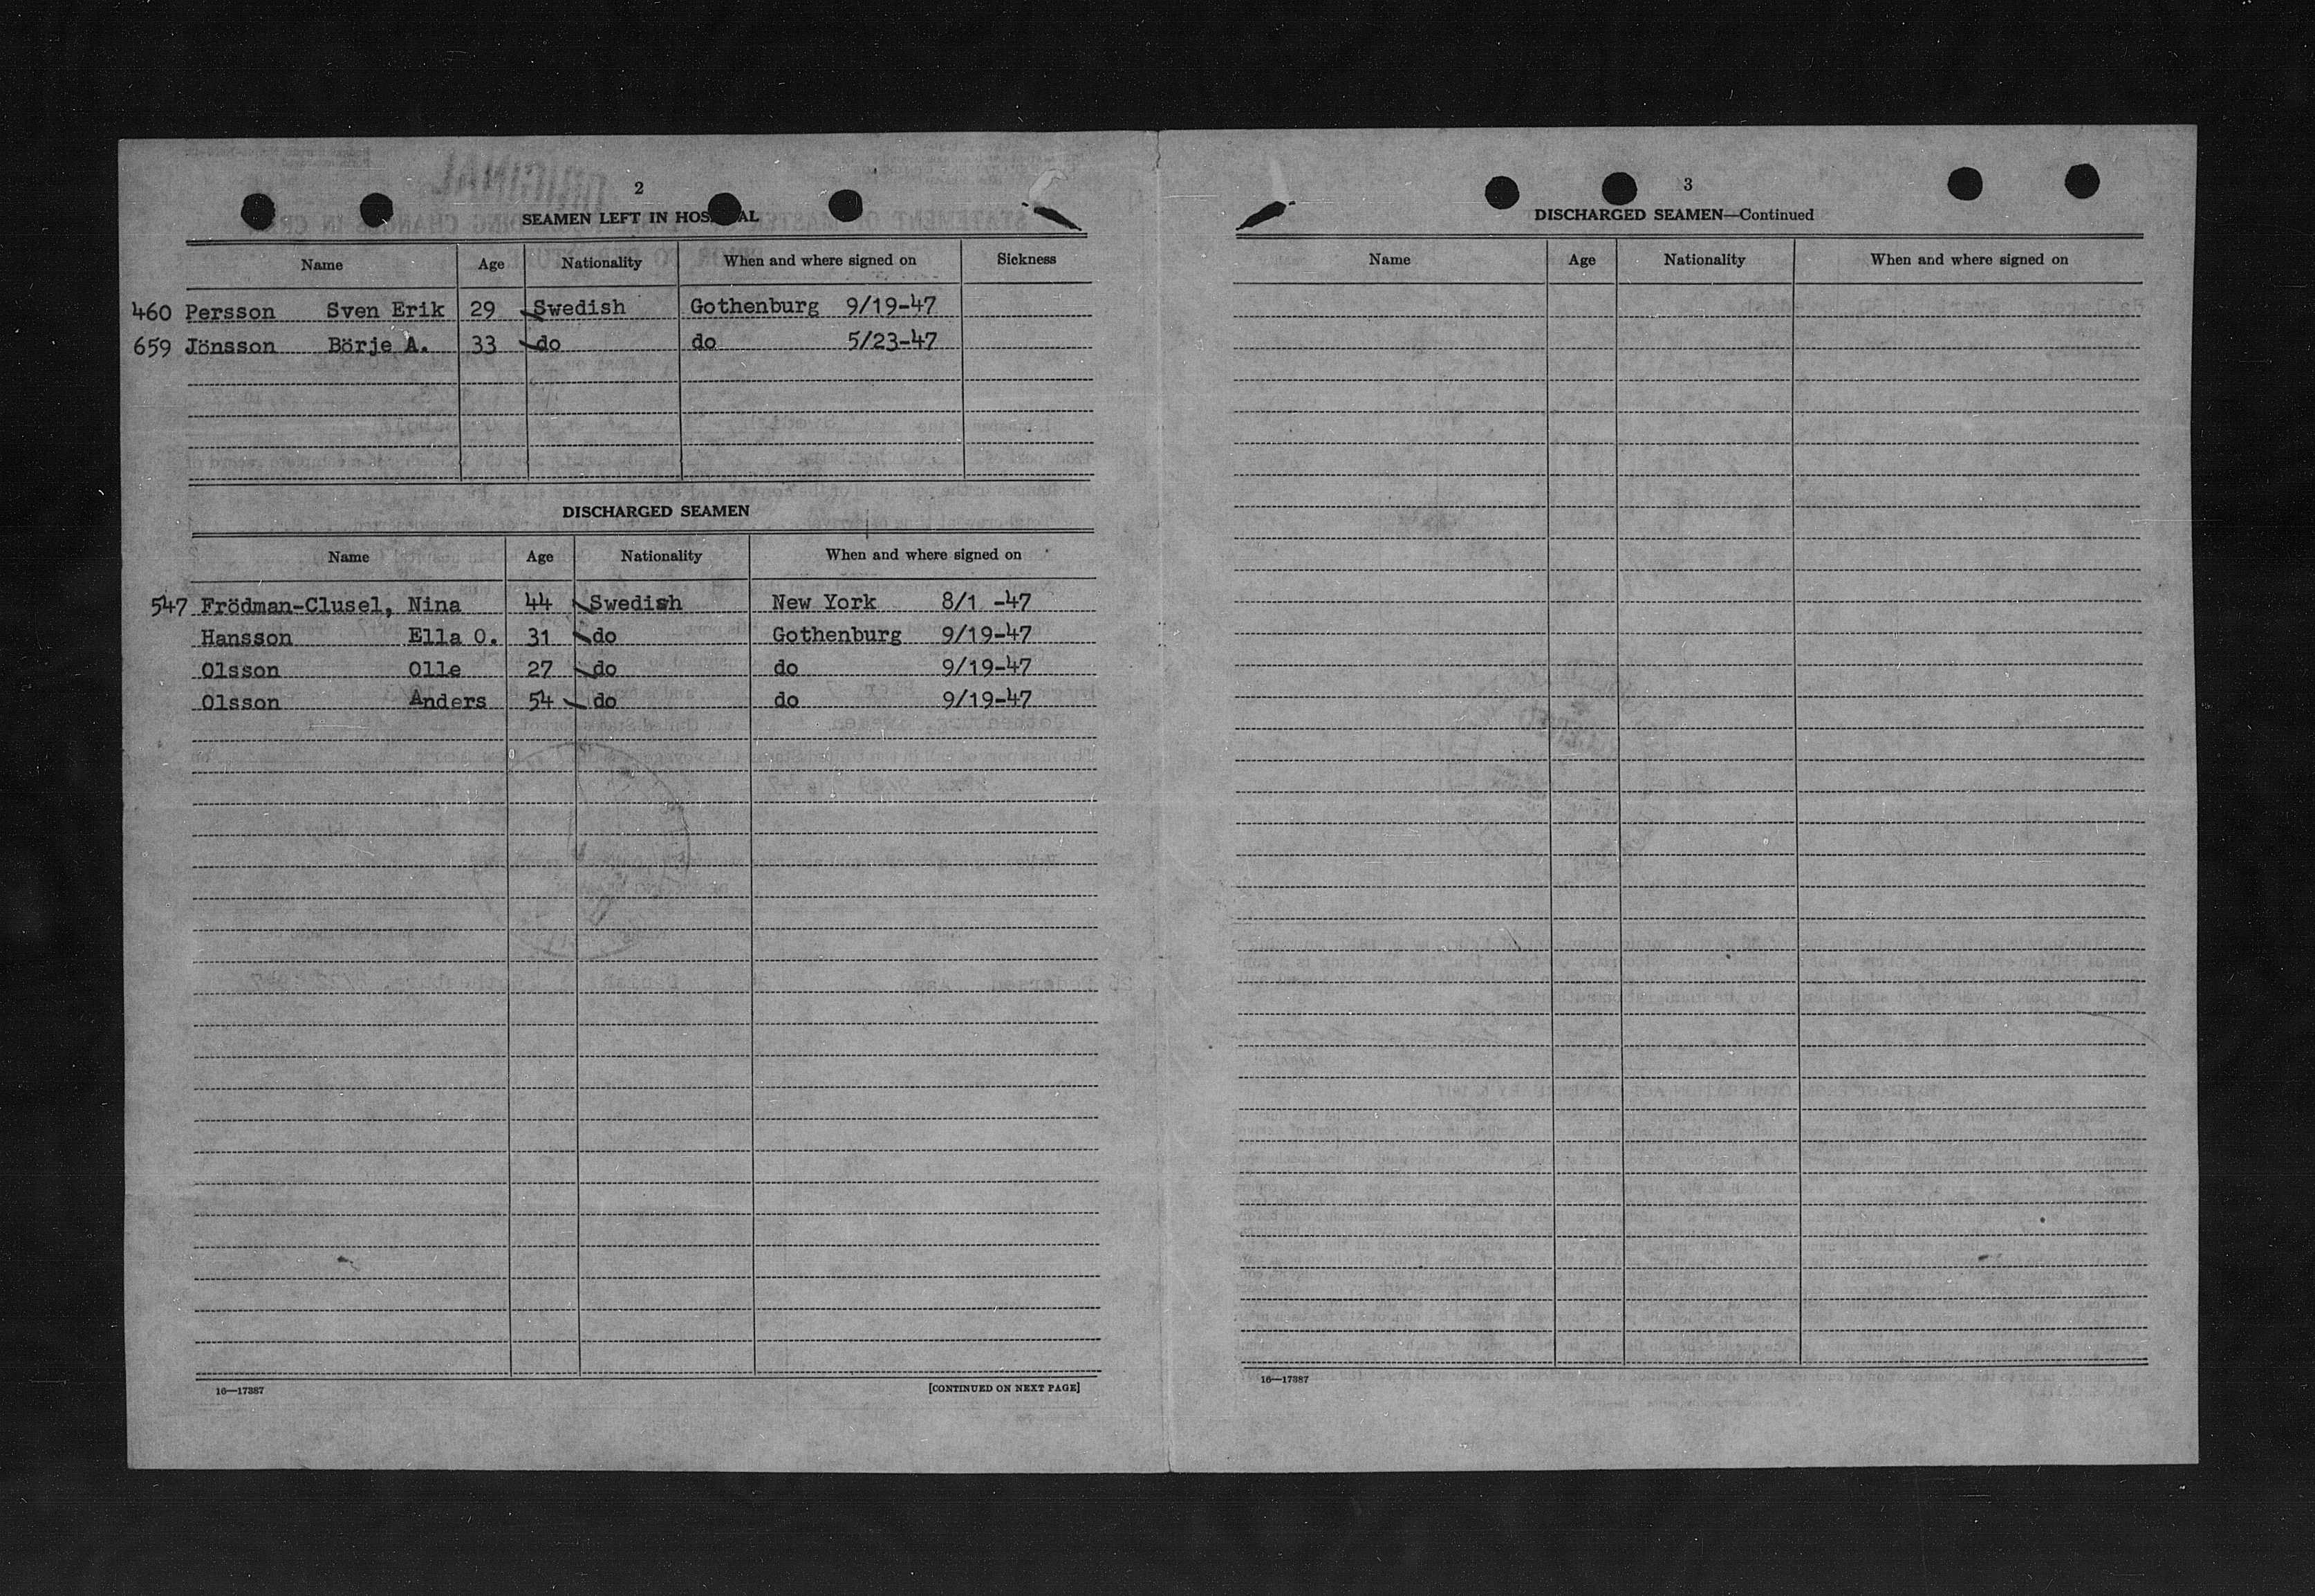 2
SEAMEN LEFT IN HOSPITAL
Name Age Nationality When and where signed on Sickness
460 Persson Sven Erik 29 Swedish Gothenburg 9/19-47
659 Jönsson Börje A. 33 do do 5/23-47
DISCHARGED SEAMEN
Name Age Nationality When and where signed on
547 Frödman-Clusel, Nina 44 Swedish New York 8/1 -47
Hansson Ella O. 31 do Gothenburg 9/19-47
Olsson Olle 27 do do 9/19-47
Olsson Anders 54 do do 9/19-47
16—17387 [CONTINUED ON NEXT PAGE]
3
DISCHARGED SEAMEN—Continued
Name Age Nationality When and where signed on
16—17387